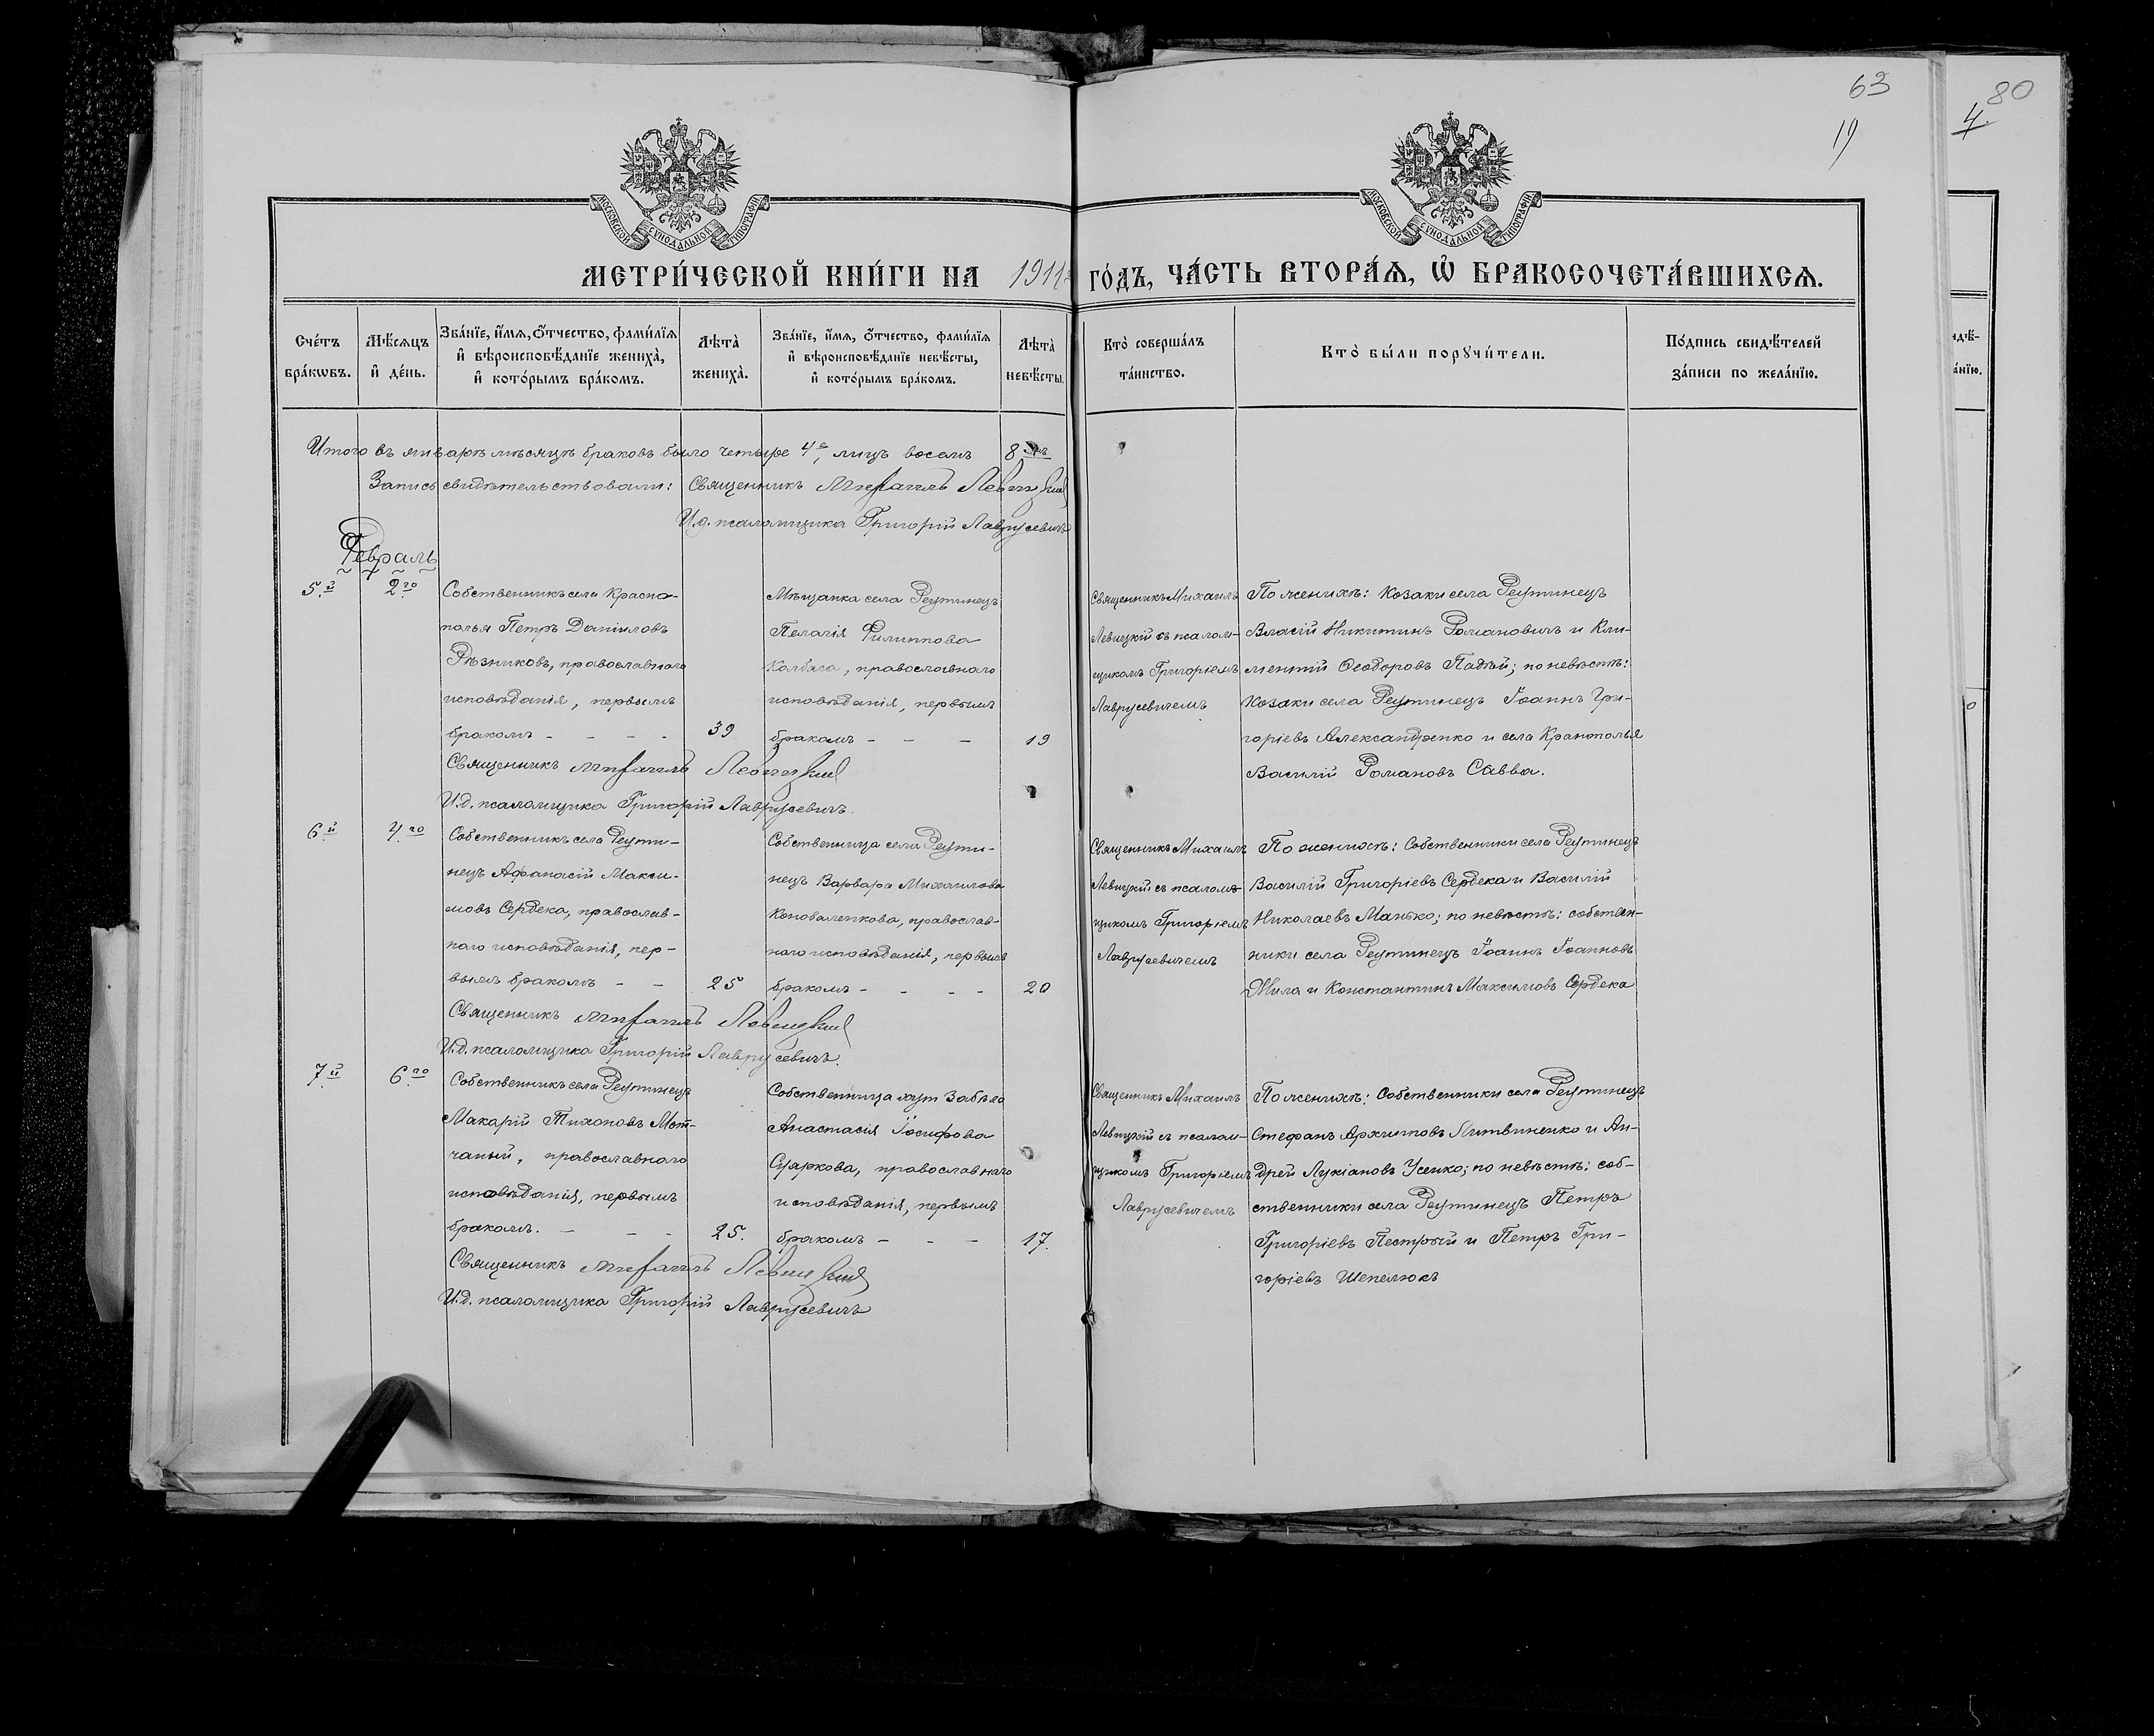 63
80
4.
19
МОСКОВСКОЙ СѴНОДАЛЬНОЙ ТИПОГРАФІИ
МОСКОВСКОЙ СѴНОДАЛЬНОЙ ТИПОГРАФІИ
МЕТРИ́ЧЕСКОЙ КНИ́ГИ НА 1911й ГО́ДЪ, ЧА́СТЬ ВТОРА́Ѧ, Ѽ БРАКОСОЧЕТА́ВШИХСѦ.
Сче́тъ бра́кѡвъ.
Мѣ́сѧцъ и҆ де́нь.
Зва́нїе, и҆́мѧ, ѻ҆́тчество, фами́лїѧ и҆ вѣроисповѣ́данїе жениха̀, и҆ кото́рымъ бра́комъ.
Лѣта̀ жениха̀.
Зва́нїе, и҆́мѧ, ѻ҆́тчество, фами́лїѧ и҆ вѣроисповѣ́данїе невѣ́сты, и҆ кото́рымъ бра́комъ.
Лѣта̀ невѣ́сты.
Кто̀ соверша́лъ та́инство.
Кто̀ бы́ли порꙋчи́тели.
По́дпись свидѣ́телей за́писи по жела́нїю.
Итого въ январѣ мѣсяцѣ браковъ было четыре 4е, лицъ восемь 8
Запись свидѣтельствовали: Священникъ Михаилъ Левицкій
И.д. псаломщика Григорій Лаврусевичъ
Февраль
5.й 2го
Собственникъ села Краспо-
полья Петръ Даніиловъ
Рѣзниковъ, православнаго
исповѣданія, первымъ
бракомъ - - - - 39
Мѣщанка села Реутинецъ
Пелагія Филиппова
Колбаса, православнаго
исповѣданія, первымъ
бракомъ - - - 19
Священникъ Михаилъ
Левицкій съ псалом-
щикомъ Григоріемъ
Лаврусевичемъ
По женихѣ: Козаки села Реутинецъ
Власій Никитинъ Романовичъ и Кли-
ментій Ѳеодоровъ Падѣй; по невѣстѣ:
Козаки села Реутинецъ Іоаннъ Гри-
горіевъ Александренко и села Кранополья
Василій Романовъ Савва.
Священникъ Михаилъ Левицкій
И.д. псаломщика Григорій Лаврусевичъ.
6.й 4.го
Собственникъ села Реути-
нецъ Афанасій Макси-
мовъ Сердека, православ-
наго исповѣданія, пер-
вымъ бракомъ - - 25
Собственница села Реути-
нецъ Варвара Михаилова
Коноваленкова, православ-
наго исповѣданія, первымъ
бракомъ - - - - 20
Священникъ Михаилъ
Левицкій съ псалом-
щикомъ Григоріемъ
Лаврусевичемъ
По женихѣ: Собственники села Реутинецъ
Василій Григоріевъ Сердека и Василій
Николаевъ Манько; по невѣстѣ: собствен-
ники села Реутинецъ Іоаннъ Іоанновъ
Жила и Константинъ Максимовъ Сердека
Священникъ Михаилъ Левицкій
И.д. псаломщика Григорій Лаврусевичъ.
7.й 6.го
Собственникъ села Реутинецъ
Макарій Тихоновъ Мот-
чаный, православнаго
исповѣданія, первымъ
бракомъ. - - - 25.
Собственница хут Забѣло
Анастасія Іосифова
Суяркова, православнаго
исповѣданія, первымъ
бракомъ - - - 17.
Священникъ Михаилъ
Левицкій съ псалом-
щикомъ Григоріемъ
Лаврусевичемъ
По женихѣ: Собственники села Реутинецъ
Стефанъ Архиповъ Литвиненко и Ан-
дрей Лукіановъ Усенко; по невѣстѣ: соб-
ственники села Реутинецъ Петръ
Григоріевъ Пестрый и Петръ Гри-
горіевъ Шепелюкъ
Священникъ Михаилъ Левицкій
И.д. псаломщика Григорій Лаврусевичъ